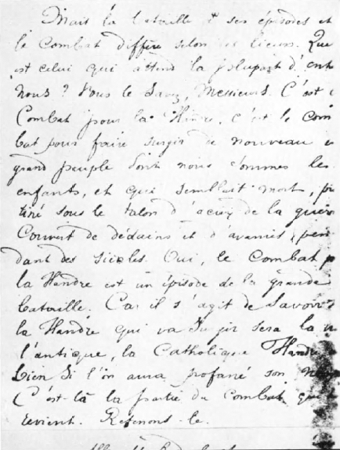 Mais la bataille a ses épisodes et
le Combat diffère selon les lieux. Quel
est celui qui attend la plupart d'entre
nous ? Vous le savez, Messieurs. C'est le
Combat pour la Flandre, c'est le com
bat pour faire surgir de nouveau un
grand peuple dont nous sommes les
enfants, et qui semblait mort, 
sous le talon de la guerre
Couvert de dédains et d'avanies, pen
dant des siècles. Oui, le Combat pour
la Flandre est un épisode de la grande
bataille. Car il s'agit de savoir si
la Flandre qui va surgir sera la
l'antique, la Catholique Flandre
bien si l'on aura profané son nom
C'est là la partie du Combat qui
revient. Retenons-le.